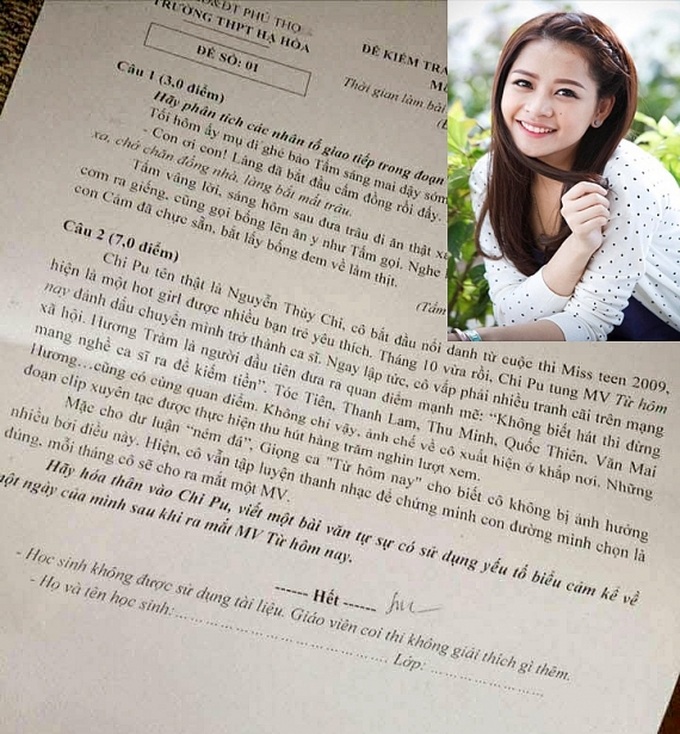 GD&ĐT PHÚ THỌ
TRƯỜNG THPT HẠ HÒA
ĐỀ SỐ: 01
ĐỀ KIỂM TRA
Thời gian làm bài
Câu 1 (3,0 điểm)
Hãy phân tích các nhân tố giao tiếp trong đoạn
Tối hôm ấy mụ dì ghẻ bảo Tấm sáng mai dậy sớm
- Con ơi con! Làng đã bắt đầu cấm đồng rồi đấy.
xa, chớ chăn đồng nhà, làng bắt mất trâu.
Tấm vâng lời, sáng hôm sau đưa trâu đi ăn thật xa
cơm ra giếng, cũng gọi bống lên ăn y như Tấm gọi. Nghe
con Cám đã chực sẵn, bắt lấy bống đem về làm thịt.
(Tấm
Câu 2 (7,0 điểm)
Chi Pu tên thật là Nguyễn Thùy Chi, cô bắt đầu nổi danh từ cuộc thi Miss teen 2009,
hiện là một hot girl được nhiều bạn trẻ yêu thích. Tháng 10 vừa rồi, Chi Pu tung MV Từ hôm
nay đánh dấu chuyện mình trở thành ca sĩ. Ngay lập tức, cô vấp phải nhiều tranh cãi trên mạng
xã hội. Hương Tràm là người đầu tiên đưa ra quan điểm mạnh mẽ: “Không biết hát thì đừng
mang nghề ca sĩ ra để kiếm tiền”. Tóc Tiên, Thanh Lam, Thu Minh, Quốc Thiên, Văn Mai
Hương…cũng có cùng quan điểm. Không chỉ vậy, ảnh chế về cô xuất hiện ở khắp nơi. Những
đoạn clip xuyên tạc được thực hiện thu hút hàng trăm nghìn lượt xem.
Mặc cho dư luận “ném đá”, Giọng ca "Từ hôm nay" cho biết cô không bị ảnh hưởng
nhiều bởi điều này. Hiện, cô vẫn tập luyện thanh nhạc để chứng minh con đường mình chọn là
đúng, mỗi tháng cô sẽ cho ra mắt một MV.
Hãy hóa thân vào Chi Pu, viết một bài văn tự sự có sử dụng yếu tố biểu cảm kể về
một ngày của mình sau khi ra mắt MV Từ hôm nay.
------ Hết ------
- Học sinh không được sử dụng tài liệu. Giáo viên coi thi không giải thích gì thêm.
- Họ và tên học sinh:........................................ Lớp: ....................